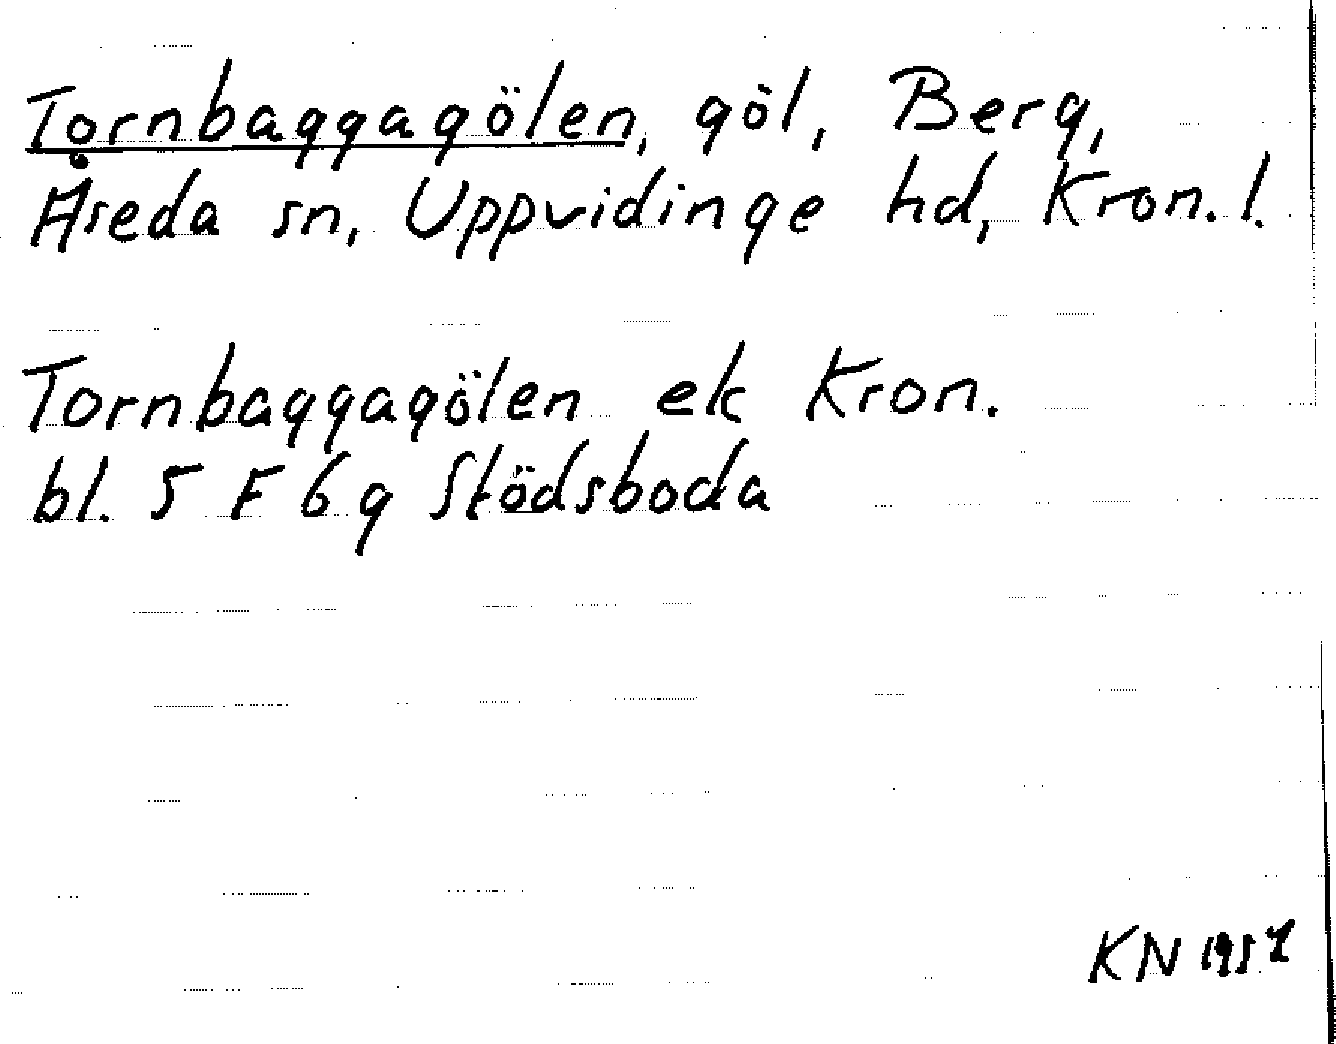 Tornbaggagölen, göl, Berg,
Åseda sn, Uppvidinge hd, Kron. l.
Tornbaggagölen ek Kron.
bl. 5 F 6 g Stödsboda
KN 1957